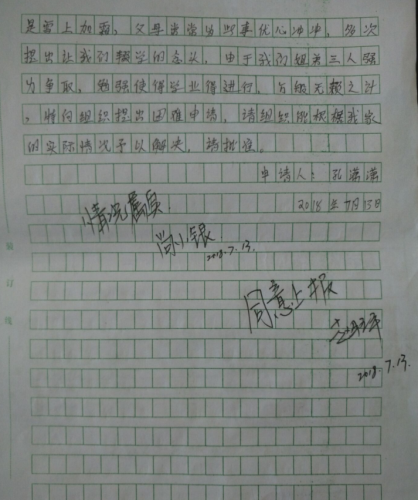 是雪上加霜，父母常常为此事忧心冲冲，多次
提出让我们辍学的念头，由于我们姐弟三人强
为争取，勉强使得学业得进行，万般无赖之计
，特向组织提出困难申请，请组织能根据我家
的实际情况予以解决，请批准。
申请人：孔潇潇
2018年7月15日
情况属实
尚小银
2018.7.13.
同意上报
2018.7.13.